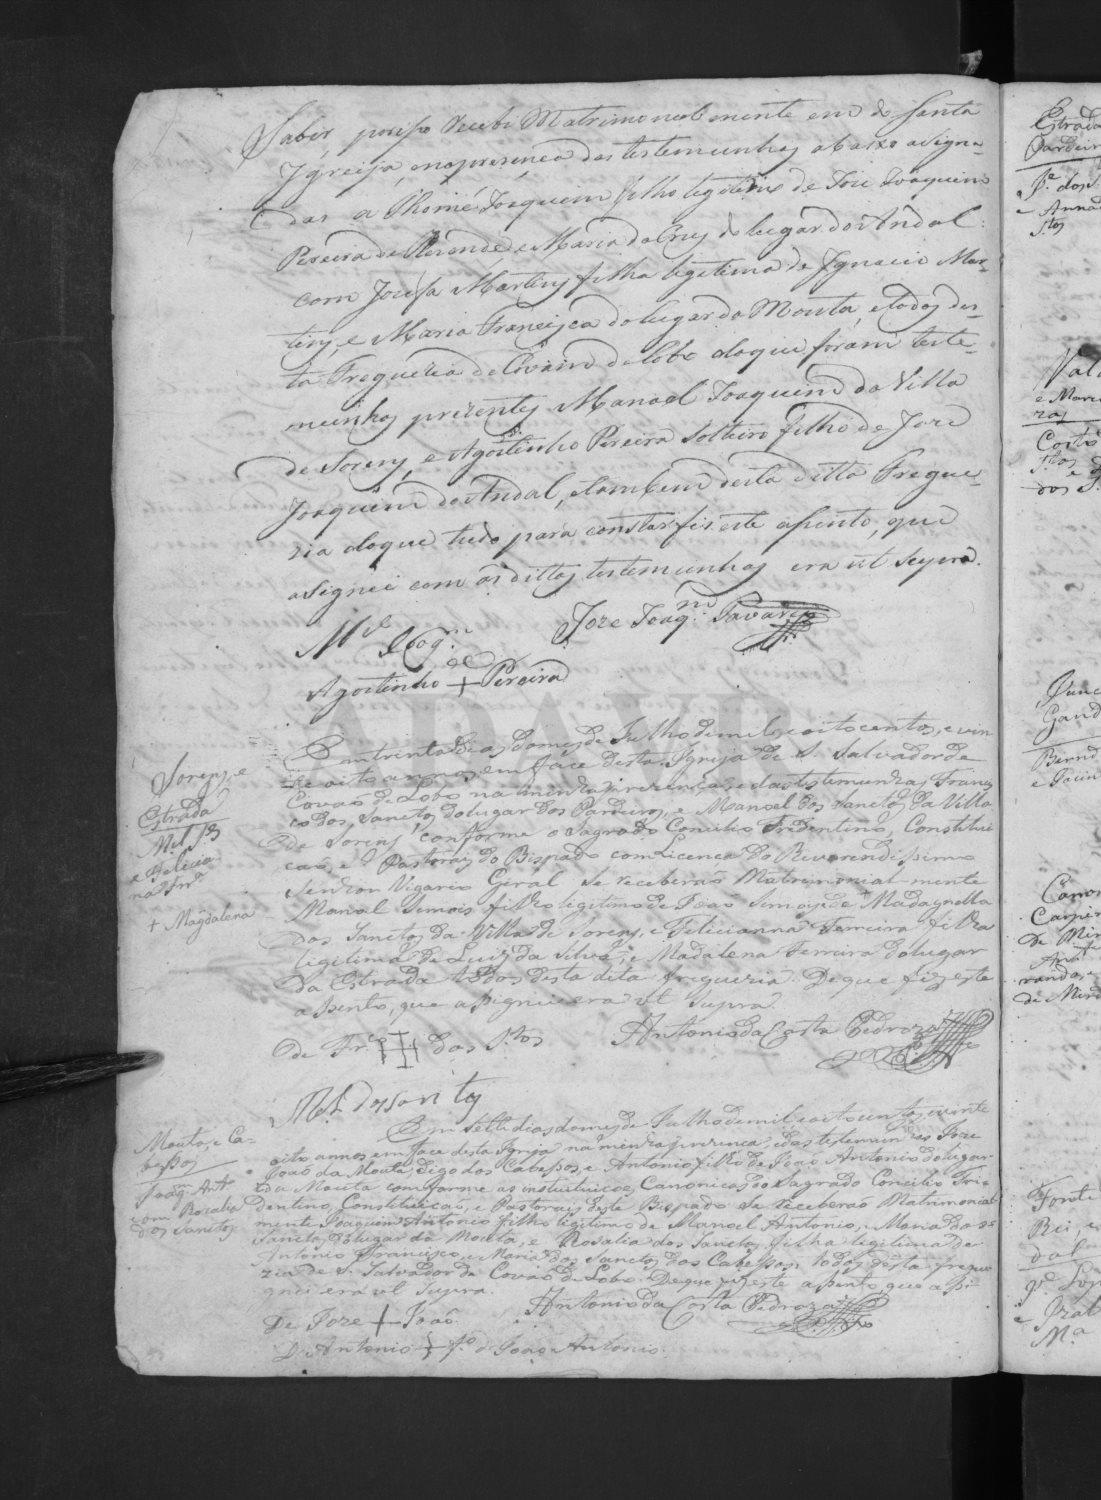 Saber, porisso Recebi Matrimonealmente em de Santa
Jgreija, enapresença das testemunhas abaixo asigna-
das a Thomé Joaquim filho legitimo de Joze Joaquim
Pereira de Rezende, e Maria da Cruz do lugar dos Andal:
com Jozefa Martins filha legitima de Jgnacio Mar-
tins, e Maria Francisca do lugar da Mouta, e todos des-
ta Freguezia de Covaim de lobo doque foram teste-
munhas prezentes Manoel Joaquim da Villa
de Sorens, e Agostinho Pereira Solteiro filho de Joze
Joaquim dos Andal, etambem desta ditta Fregue-
zia doque tudo para constar fis este asento, que
asignei com as dittas testemunhas era ut Supra.
Mel Joaqm
Joze Joaqm Tavares
Agostinho + Pereira
ADAVR
Sorens, e
Estrada
Mel S
e Felicia
na Frra
+ Magdalena
Em trinta dias domes de Julho de mil e oito centos, e vin
te oito annos, em face desta Igreja de S. Salvador de
Covão de Lobo na minha prezença, e das testemunhas, Francis
co dos Sanctos, do lugar dos Pardeiros, e Manoel dos Sanctos da Villa
de Sorens, conforme o Sagrado Concilio Tredentino, Constitui
cão, e Pastorais do Bispado com Licença do Reverendissimo
Senhor Vigario Geral Se receberão Matrimonial-mente
Manoel Simois filho legitimo de João Simois, e Madagnella
dos Sanctos da Villa de Sorens, e Felicianna Ferreira filha
legitima de Luis da Silva, e Madalena Ferreira do lugar
da Estrada todos desta dita freguezia. De que fiz este
assento, que assignei era ut supra.
Antonio da Costa Pedroza
de Frco + dos Stos
Mel dos Santos
Mouta, e Ca-
bessos
Joaqm Anto
com Rosalia
dos Sanctos
Em sette dias domes de Julho de mil e oito centos, e vinte
oito annos, em face desta Igreja na minha prezenca, e das testemunhas Joze
João da Mouta, digo dos Cabessos, e Antonio filho de João Antonio do lugar
da Mouta conforme as instituicoes Canonicas do Sagrado Concilio Tri-
dentino, Constituicão, e Pastorais deste Bispado se receberão Matrimonial
mente Joaquim Antonio filho legitimo de Manoel Antonio, e Maria dos
Sanctos do lugar da Mouta, e Rosalia dos Sanctos filha legitima de
Antonio Francisco, e Maria dos Sanctos dos Cabessos, todos desta fregue
zia de S. Salvador de Covão de Lobo. De que fiz este assento, que assi
gnei era ut supra.
Antonio da Costa Pedroza
De Joze + João
D. Antonio + fo d João Antonio.
Estrada
Pardeir
e Anna
Stos
Vala
e Mari
Costa
Gand
Bernd
Canon
Carpin
de Mir
de Mird
Fonte
Rei, e
dal